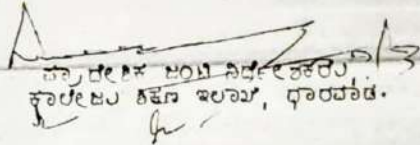 ಪ್ರಾದೇಶಿಕ ಜಂಟಿ ನಿರ್ದೇಶಕರು,
ಕಾಲೇಜು ಶಿಕ್ಷಣ ಇಲಾಖೆ, ಧಾರವಾಡ.